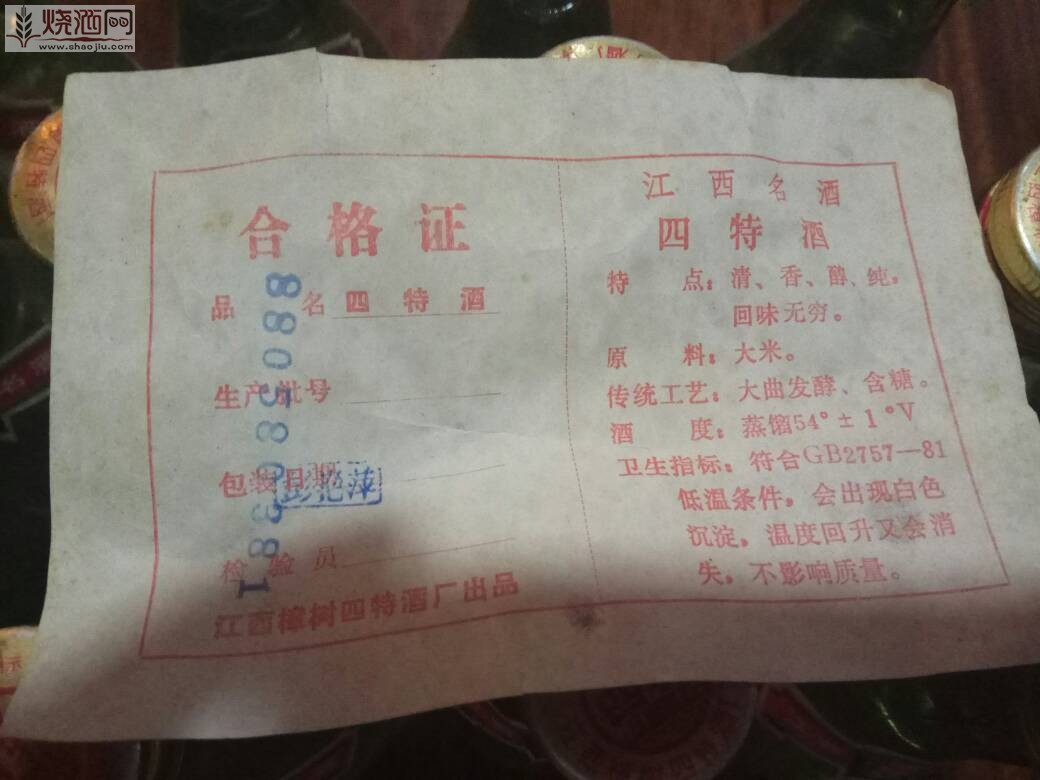 烧酒网
www.shaojiu.com
合格证
品 名 四特酒
生产批号
包装日期
彭艳萍
检验员
江西樟树四特酒厂出品
江西名酒
四特酒
特 点：清、香、醇、纯，
回味无穷。
原 料：大米。
传统工艺：大曲发酵、含糖。
酒 度：蒸馏54°±1°V
卫生指标：符合GB2757—81
低温条件，会出现白色
沉淀，温度回升又会消
失，不影响质量。